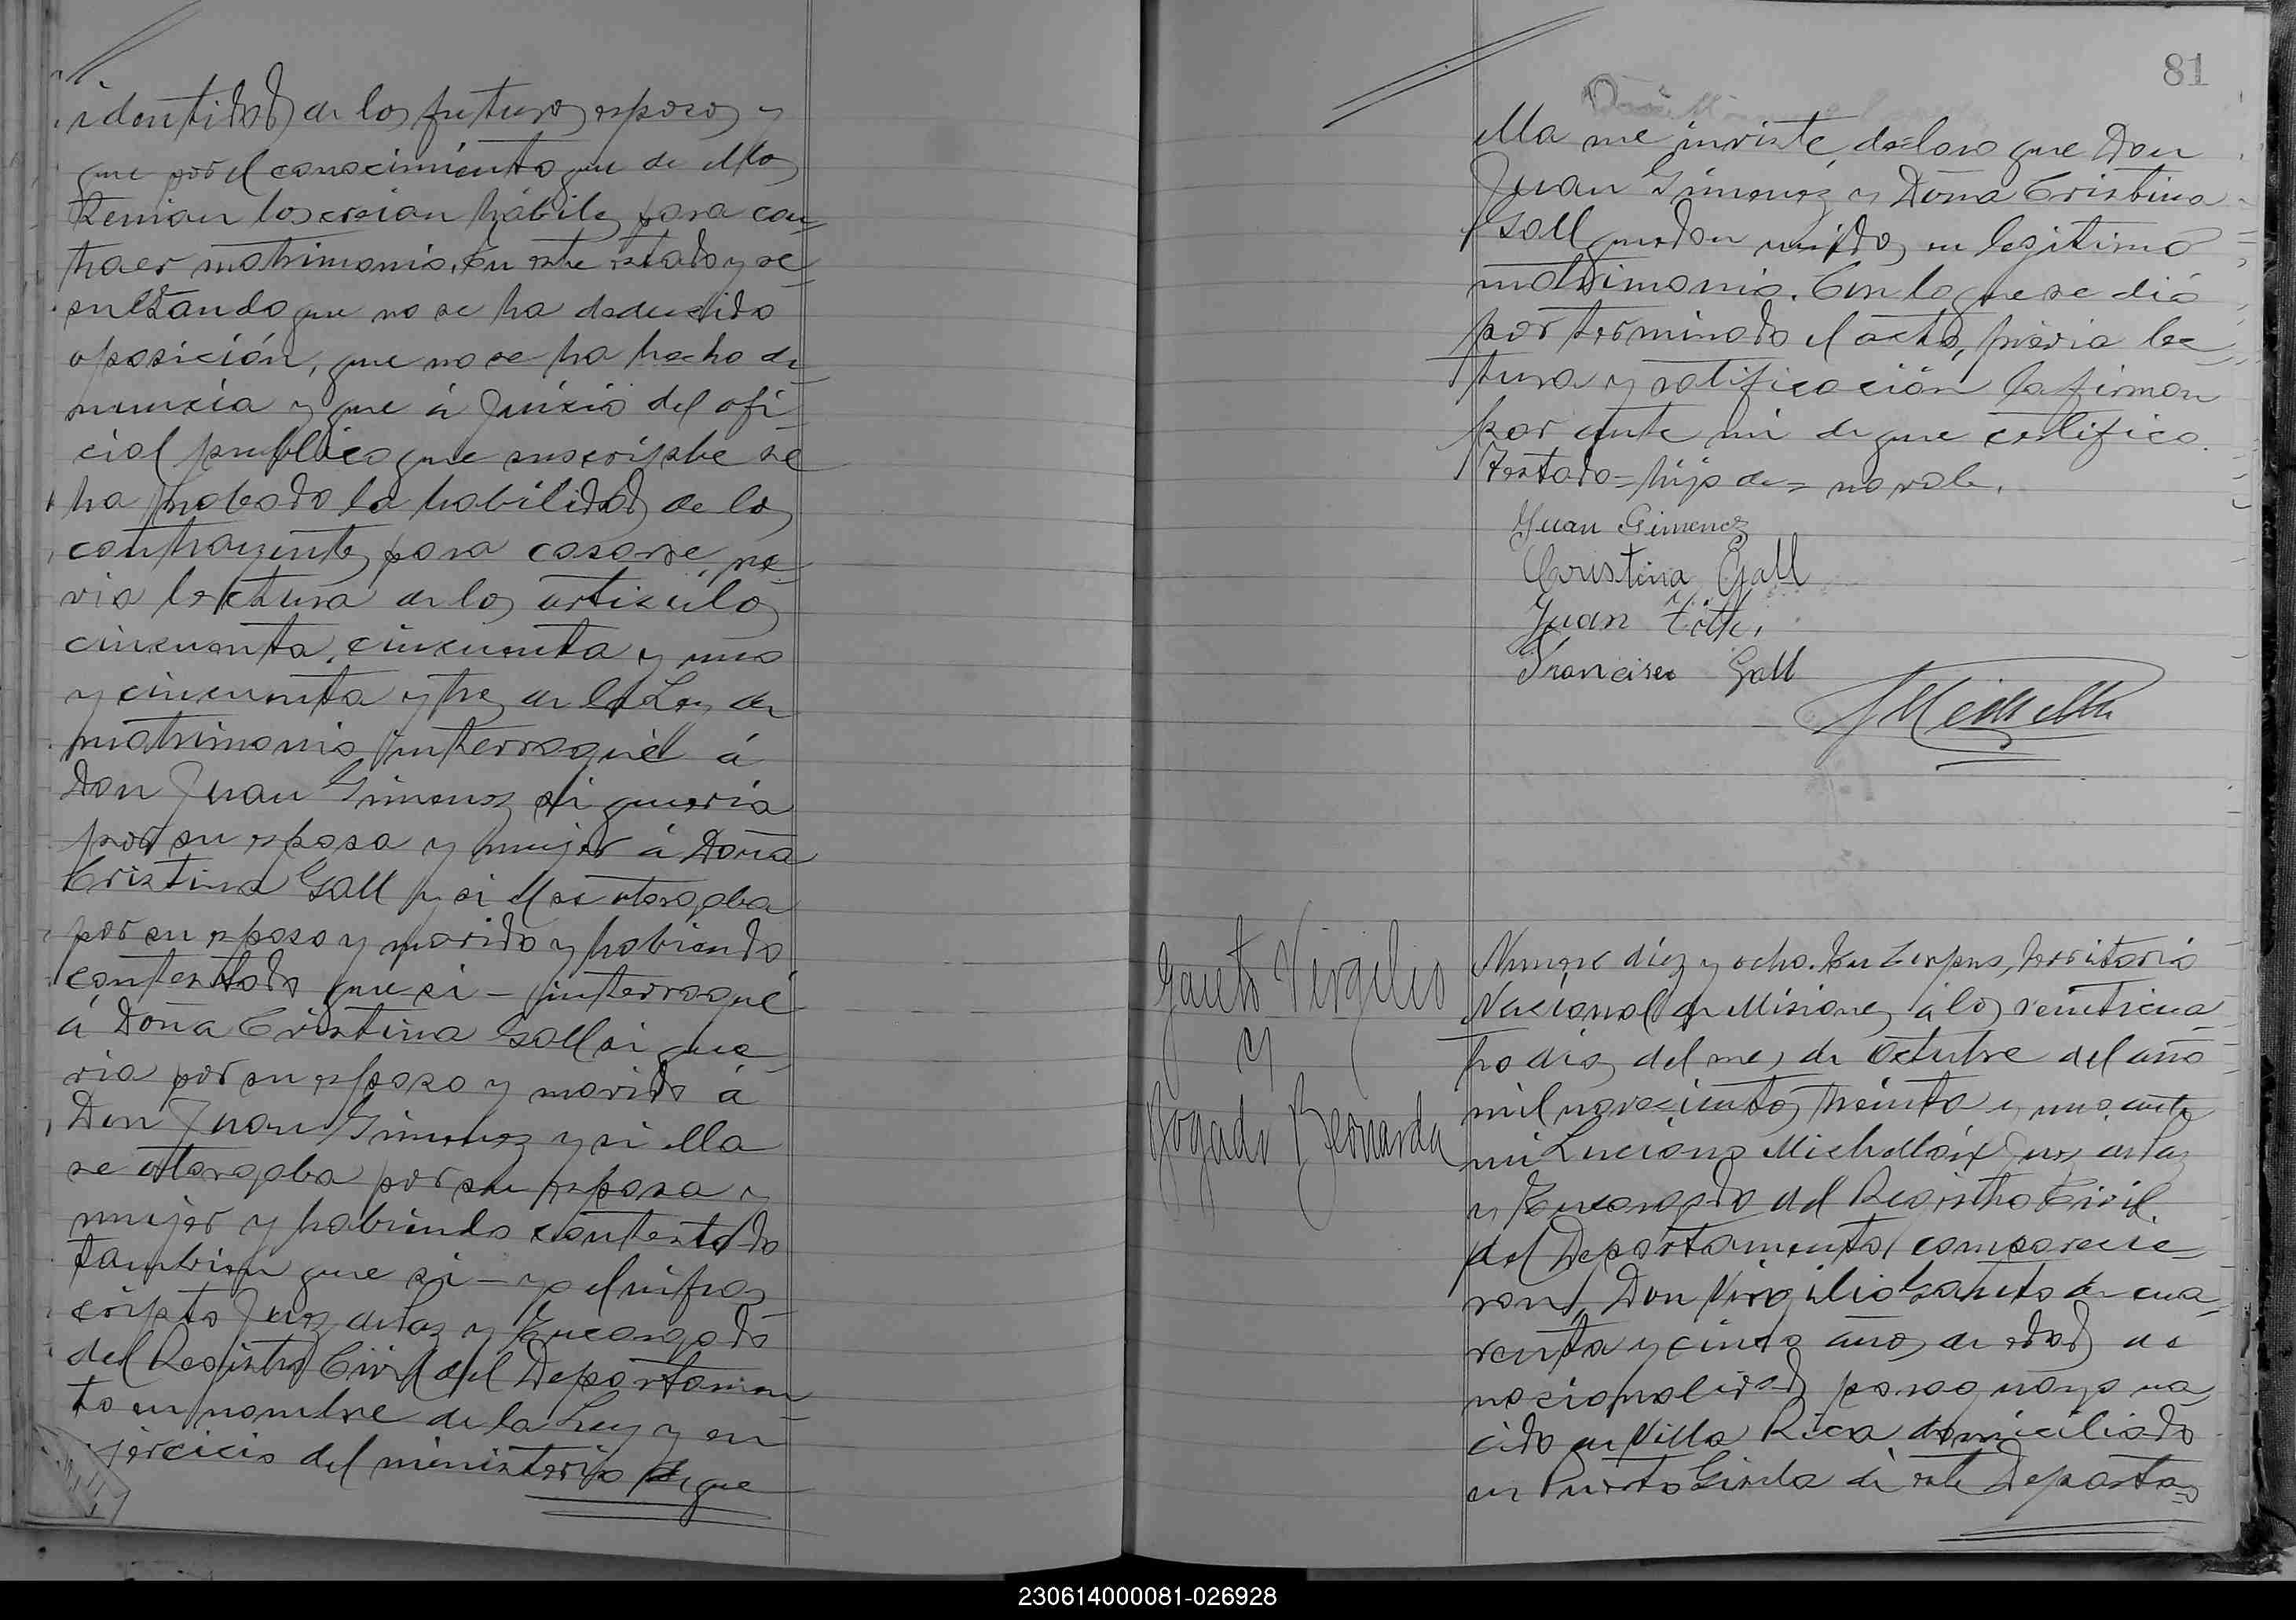 identidad de los futuros esposos y
que por el conocimiento que de ellos
tenian los creian hábiles para con=
traer matrimonio. En este estado y re=
sultando que no se ha deducido
oposición, que no se ha hecho de=
nuncia y que á juicio del ofi=
cial publico que suscripbe se
ha probado la habilidad de los
contrayentes para casarse, pre=
via lectura de los articulos
cincuenta, cincuenta y uno
y cincuenta y tres de la Ley de
matrimonio interrogué á
Don Juan Gimenez si queria
por su esposa y mujer á Doña
Cristina Gall y si él se otorgaba
por su esposo y marido y habiendo
contestado que si - interrogué
á Doña Cristina Gall si que=
ria por su esposo y marido á
Don Juan Gimenez y si ella
se otorgaba por su esposa y
mujer y habiendo contestado
tambien que si - yo el infras
cripto Juez de Paz y Encargado
del Registro Civil del Departamen=
to en nombre de la Ley y en
ejercicio del ministerio de que
81
ella me inviste, declaro que Don
Juan Gimenez y Doña Cristina
Gall quedan unidos en legitimo
matrimonio. Con lo que se dió
por terminado el acto, prévia lec=
tura y ratificación la firman
por ante mi de que certifico.
Testado = hijo de = no vale.
Juan Gimenez
Cristina Gall
Juan
Francisco Gall
Gaieto Virgilio
y
Bogado Bernarda
Numero diez y ocho. En Corpus, territorio
Nacional de Misiones á los veinticua=
tro dias del mes de Octubre del año
mil novecientos treinta y uno ante
mi Luciano Juez de Paz
y Encargado del Registro Civil
del Departamento comparecie=
ron, Don Virgilio Gaieto de cua=
renta y cinco años de edad de
nacionalidad paraguayo na=
cido en Villa Rica domiciliado
en Puerto Gisela de este Departa=
230614000081-026928